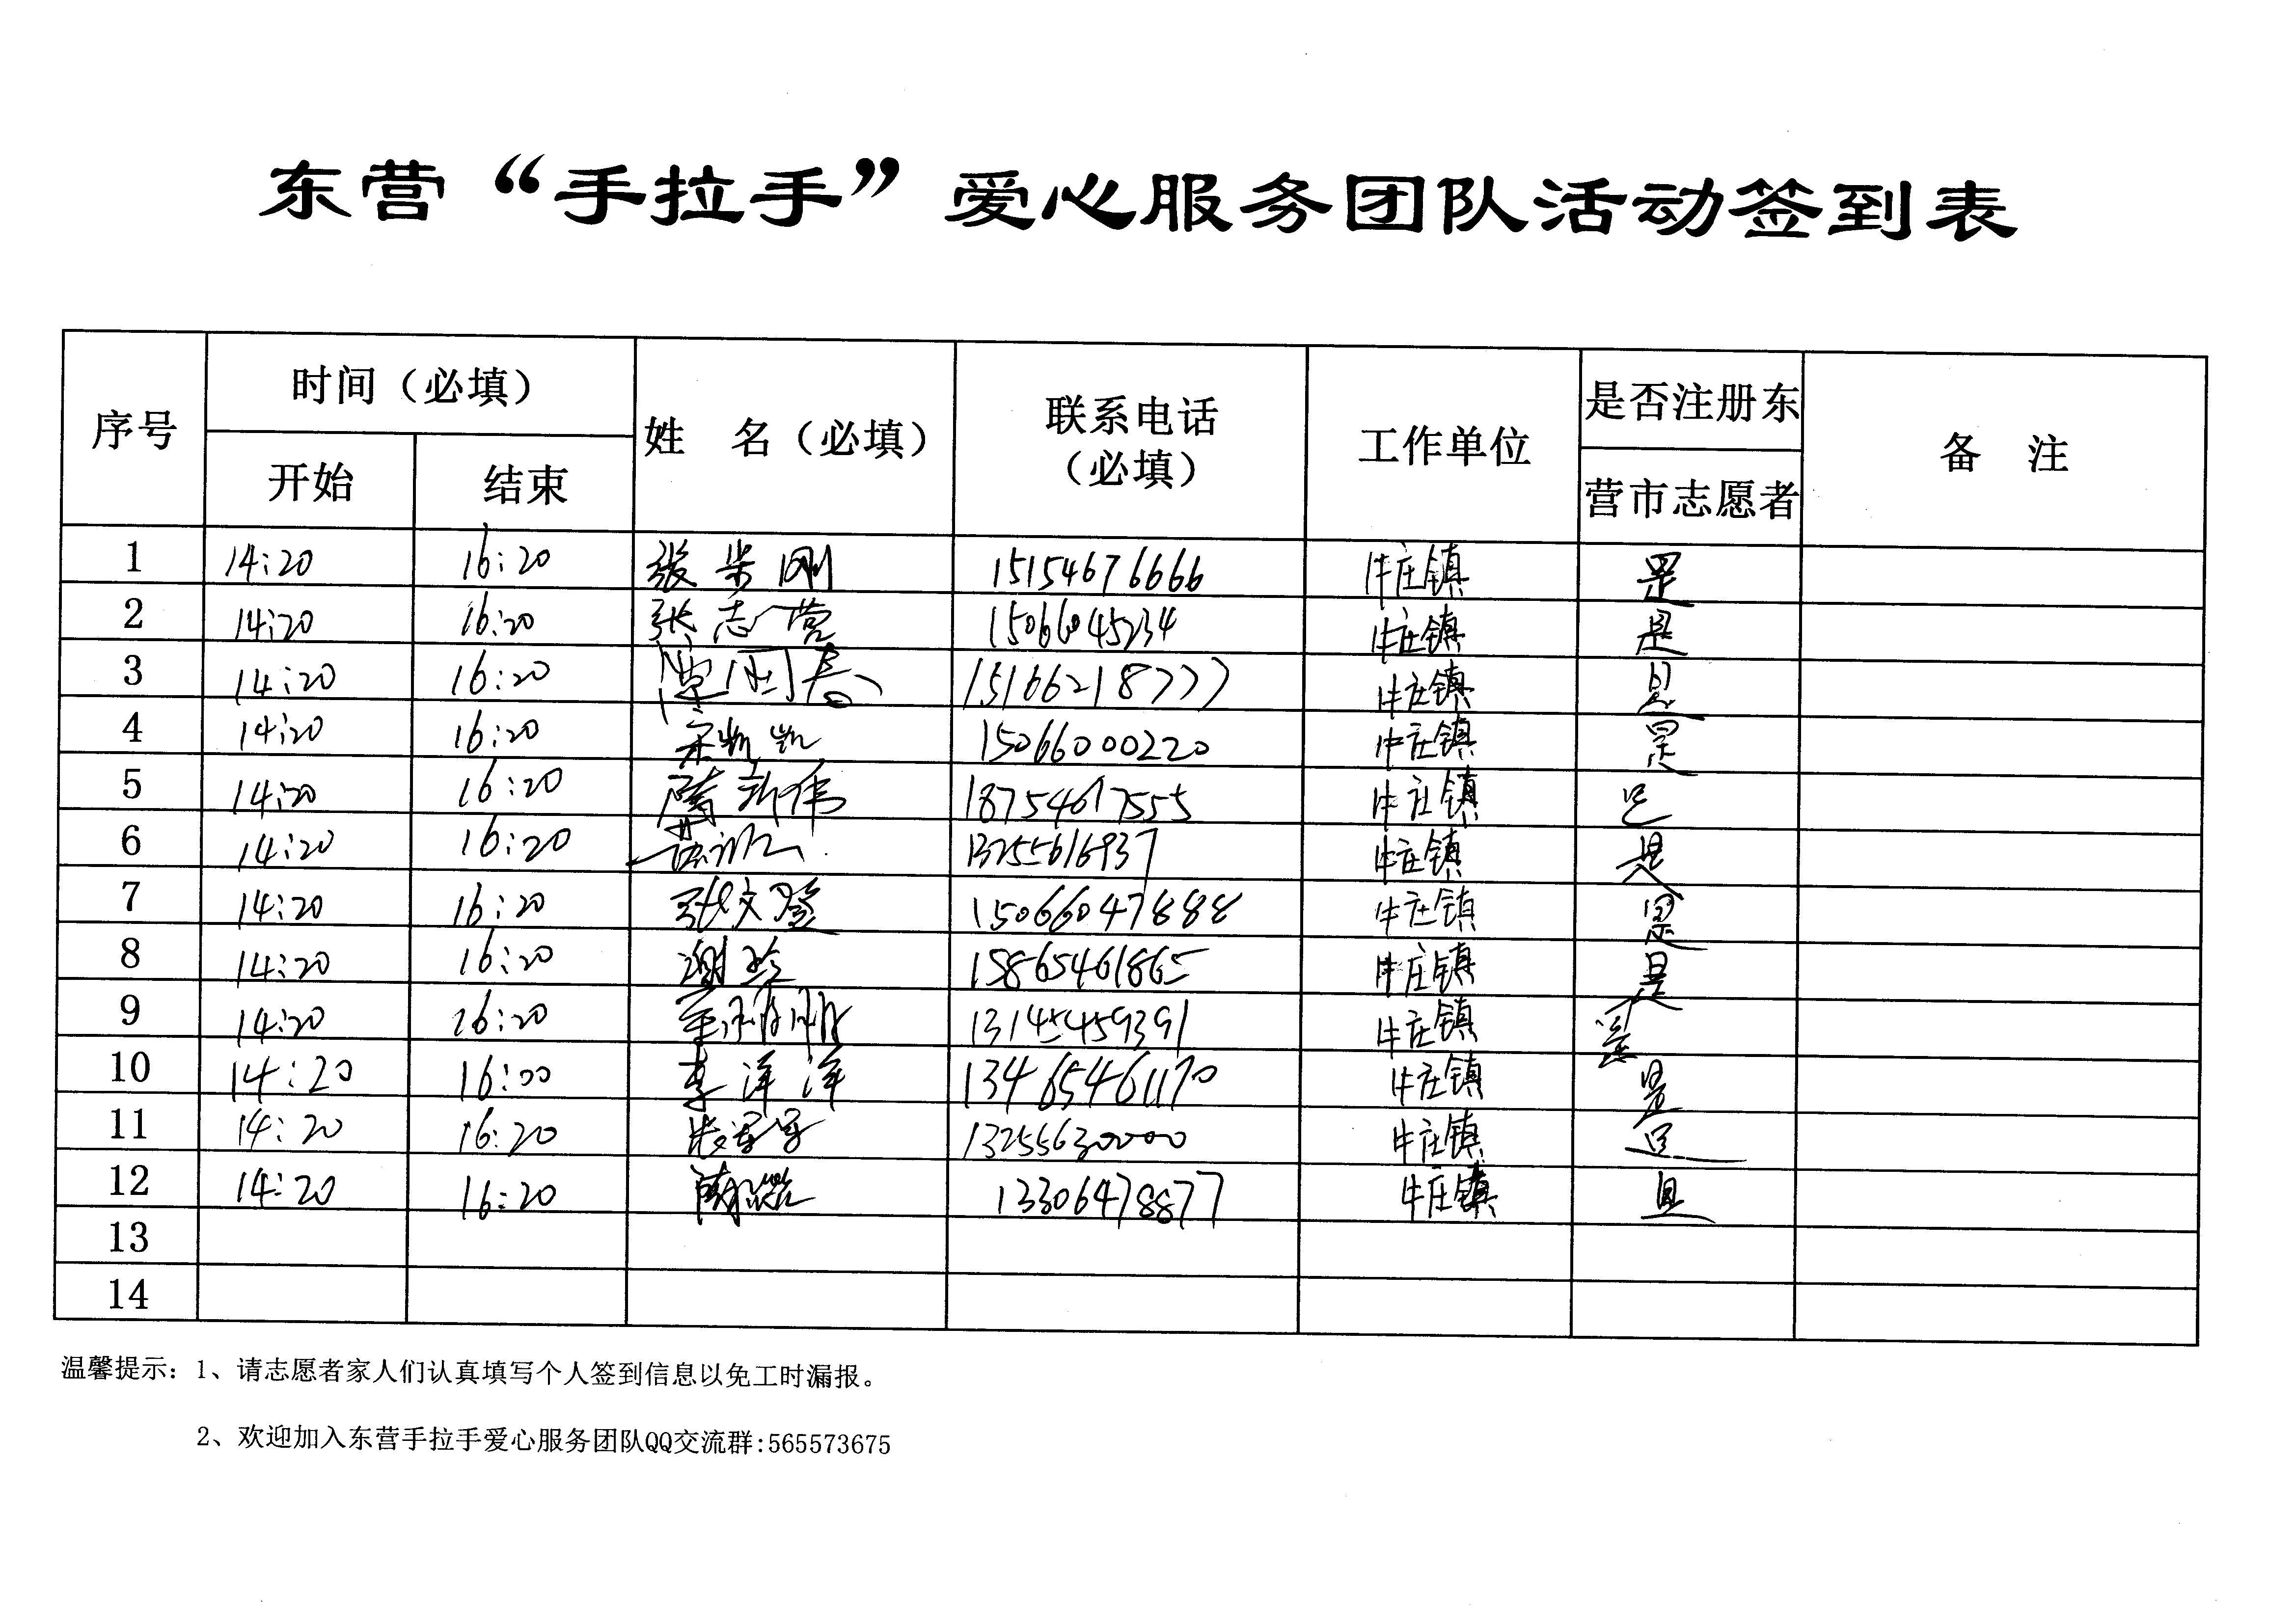 东营“手拉手”爱心服务团队活动签到表
序号 时间（必填） 姓 名（必填） 联系电话（必填） 工作单位 是否注册东营市志愿者 备 注
开始 结束
1 14:20 16:20 张 刚 15154676666 牛庄镇 是
2 14:20 16:20 张志营 15066045234 牛庄镇 是
3 14:20 16:20 15166218777 牛庄镇 是
4 14:20 16:20 宋凯凯 15066000220 牛庄镇 是
5 14:20 16:20 新伟 18754617555 牛庄镇 是
6 14:20 16:20 13255616937 牛庄镇 是
7 14:20 16:20 张文 15066047888 牛庄镇 是
8 14:20 16:20 谢玲 15865461865 牛庄镇 是
9 14:20 16:20 13145459391 牛庄镇 是
10 14:20 16:00 李洋洋 13465461170 牛庄镇 是
11 14:20 16:20 13255630000 牛庄镇 是
12 14:20 16:20 13306478877 牛庄镇 是
13
14
温馨提示：1、请志愿者家人们认真填写个人签到信息以免工时漏报。
2、欢迎加入东营手拉手爱心服务团队QQ交流群:565573675